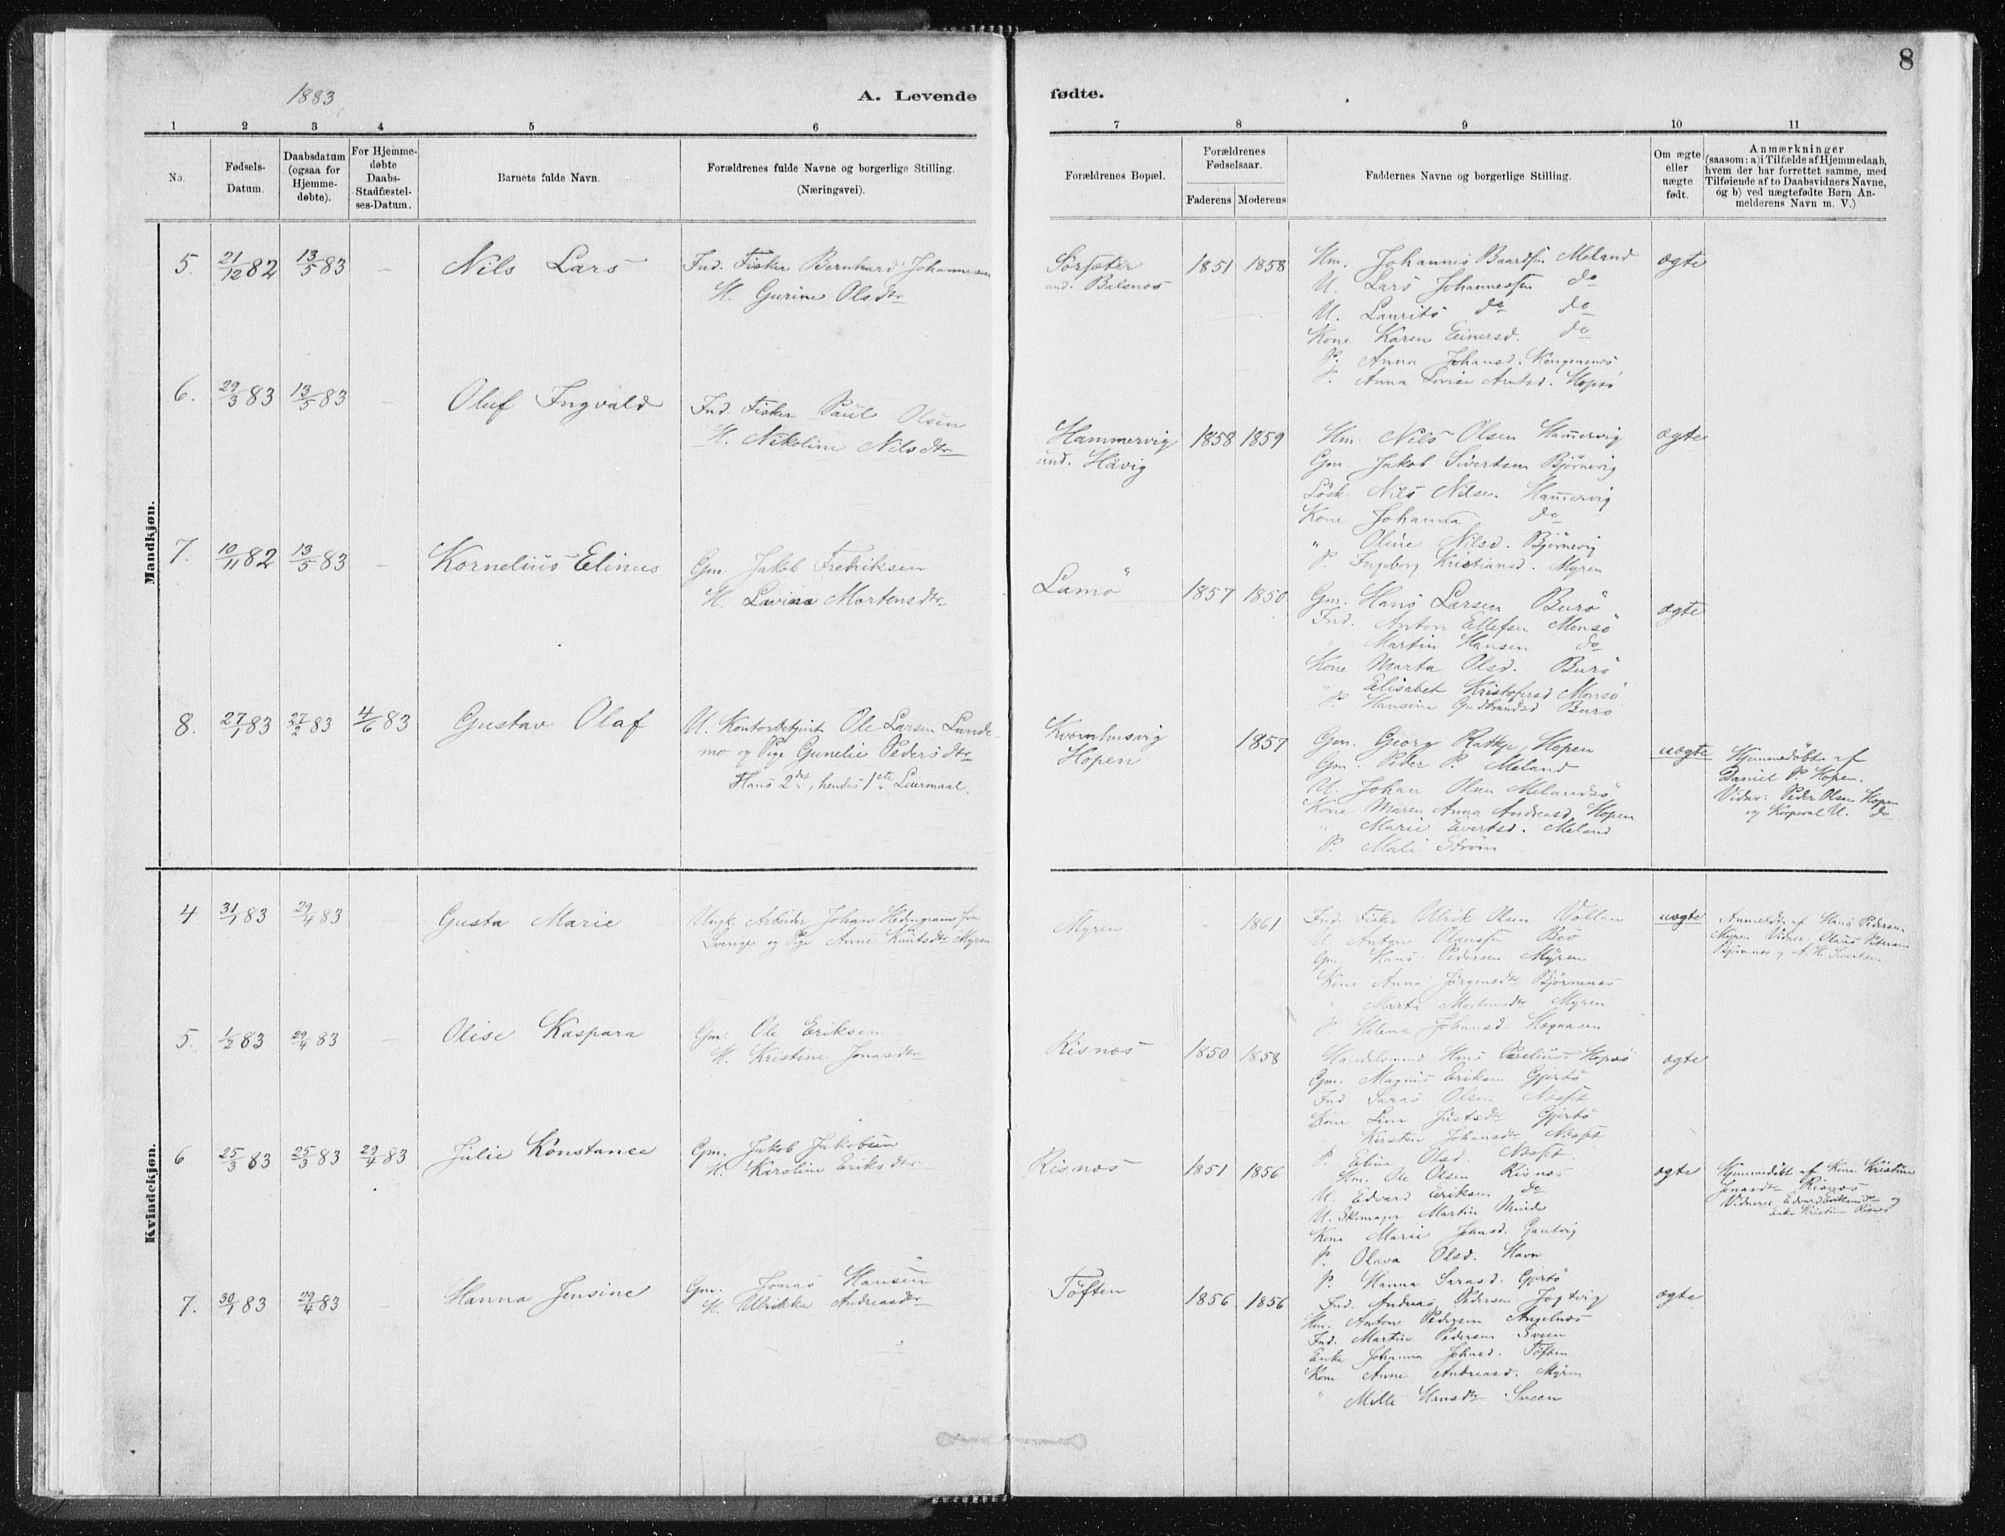 8
1883
A. Levende fødte.
1 2 3 4 5 6 7 8 9 10 11
No.
Fødsels-Datum.
Daabsdatum (ogsaa for Hjemme-døbte).
For Hjemme-døbte Daabs-Stadfæstel-ses-Datum.
Barnets fulde Navn.
Forældrenes fulde Navne og borgerlige Stilling. (Næringsvei).
Forældrenes Bopæl.
Forældrenes Fødselsaar.
Faderens Moderens
Faddernes Navne og borgerlige Stilling.
Om ægte eller uægte født.
Anmærkninger
(saasom: a) i Tilfælde af Hjemmedaab,
hvem der har forrettet samme, med
Tilføiende af to Daabsvidners Navne,
og b) ved uægtefødte Børn An-
melderens Navn m. V.)
Mandkjøn.
5. 21/12 82 13/5 83 – Nils Lars
Ind. Fisker Bernhard Johannesen
H. Gurine Olsdtr
Sørsæter
und. Balsnæs
1851 1858
Hm. Johannes Baardsen Meland
U. Lars Johannessen do
U. Laurits do do
Kone Karen Einersd. do
P. Anna Johansd. Kongensnæs
P. Anna Lovise Arntsd. Hopsø
ægte
6. 29/3 83 13/5 83 – Oluf Ingvald
Ind. Fisker Paul Olsen
H. Nikoline Nilsdtr
Hammervig
und. Håvig
1858 1859
Hm. Nils Olsen Hamervig
Gm. Jakob Sivertsen Bjørnevig
Løsk. Nils Nilsen Hamervig
Kone Johanna do
" Oline Nilsd. Bjørnevig
P. Ingeborg Kristiansd. Myren
ægte
7. 10/11 82 13/5 83 – Kornelius Elinus
Gm. Jakob Fredriksen
H. Lavina Mortensdtr
Lamø
1857 1850
Gm. Hans Larsen Burø
Ind. Anton Ellefsen Mensø
" Martin Hansen do
Kone Marta Olsd. Burø
" Elisabet Kristofersd Mensø
P. Hansine Gudbrandsd Burø
ægte
8. 27/1 83 27/2 83 4/6 83 Gustav Olaf
U. Kontorbetjent Ole Larsen Lunde-
mo og Pige Gunelie Pedersdtr
Hans 2det, hendes 1ste Leiermaal.
Kvernhusvig
Hopen
1857
Gm. Georg Rattge Hopen
Gm. Peder P. Meland
U. Johan Olsen Melandsø
Kone Maren Anna Andreasd Hopen
" Marie Evertsd. Meland
P. Mali Strøm
uægte
Hjemmedøbt af
Daniel P. Hopen.
Vidner: Peder Olsen Hopen
og Korporal U. do
Kvindekjøn.
4 31/1 83 29/4 83 – Gusta Marie
Ungk. Arbeider Johan Hedengram fra
Sverige og Pige Anne Knutsdtr Myren
Myren
1861
Ind. Fisker Ulrik Olsen Vollan
U. Anton Olansen Bø
Gm. Hans Pedersen Myren
Kone Anna Jørgensdtr Bjørnenæs
" Marta Mortensdtr Myren
P. Helena Johansd.
uægte
Anmeldt af Hans Pedersen
Myren Vidner Olaus Petersen
Bjørnnes og A. H. Sivertsen
5. 1/2 83 29/4 83 – Olise Kaspara
Gm. Ole Eriksen
H. Kristine Jonasdtr
Risnæs
1850 1858
Handelsmand Hans Parelius Hopsø
Gm. Magnus Eriksen Gjertø
Ind Saras Olsen Næsset
Kone Lina Justsdtr Gjertø
" Kirsten Johansdtr Næsset
P. Eline Olsd. Næsset
ægte
6 25/3 83 25/3 83 29/4 83 Julie Konstance
Gm. Jakob Jakobsen
H. Karoline Eriksdtr
Risnæs
1851 1856
Hm. Ole Olsen Risnæs
U. Edvard Eriksen do
U. Skomager Martin Minde
Kone Marie Jonsd. Gautvig
P. Olava Olsd. Havn
P. Hanna Sarasd. Gjertø
ægte
Hjemmedøbt af Kone Kristine
Jonasdtr Risnæs
Vidner: Edvard Eriksen og
Enke Kristine Risnæs
7. 30/1 83 29/4 83 Hanna Jensine
Gm. Jonas Hansen
H. Ulrikka Andreasdtr
Tøften
1856 1856
Ind. Andreas Pedersen Jøgtvig
Hm. Anton Pedersen Angelnæs
Ind. Martin Pedersen Sveen
Enke Johanna Johnsd. Tøften
Kone Anne Andreasd. Myren
" Mille Hansdtr Sveen
ægte